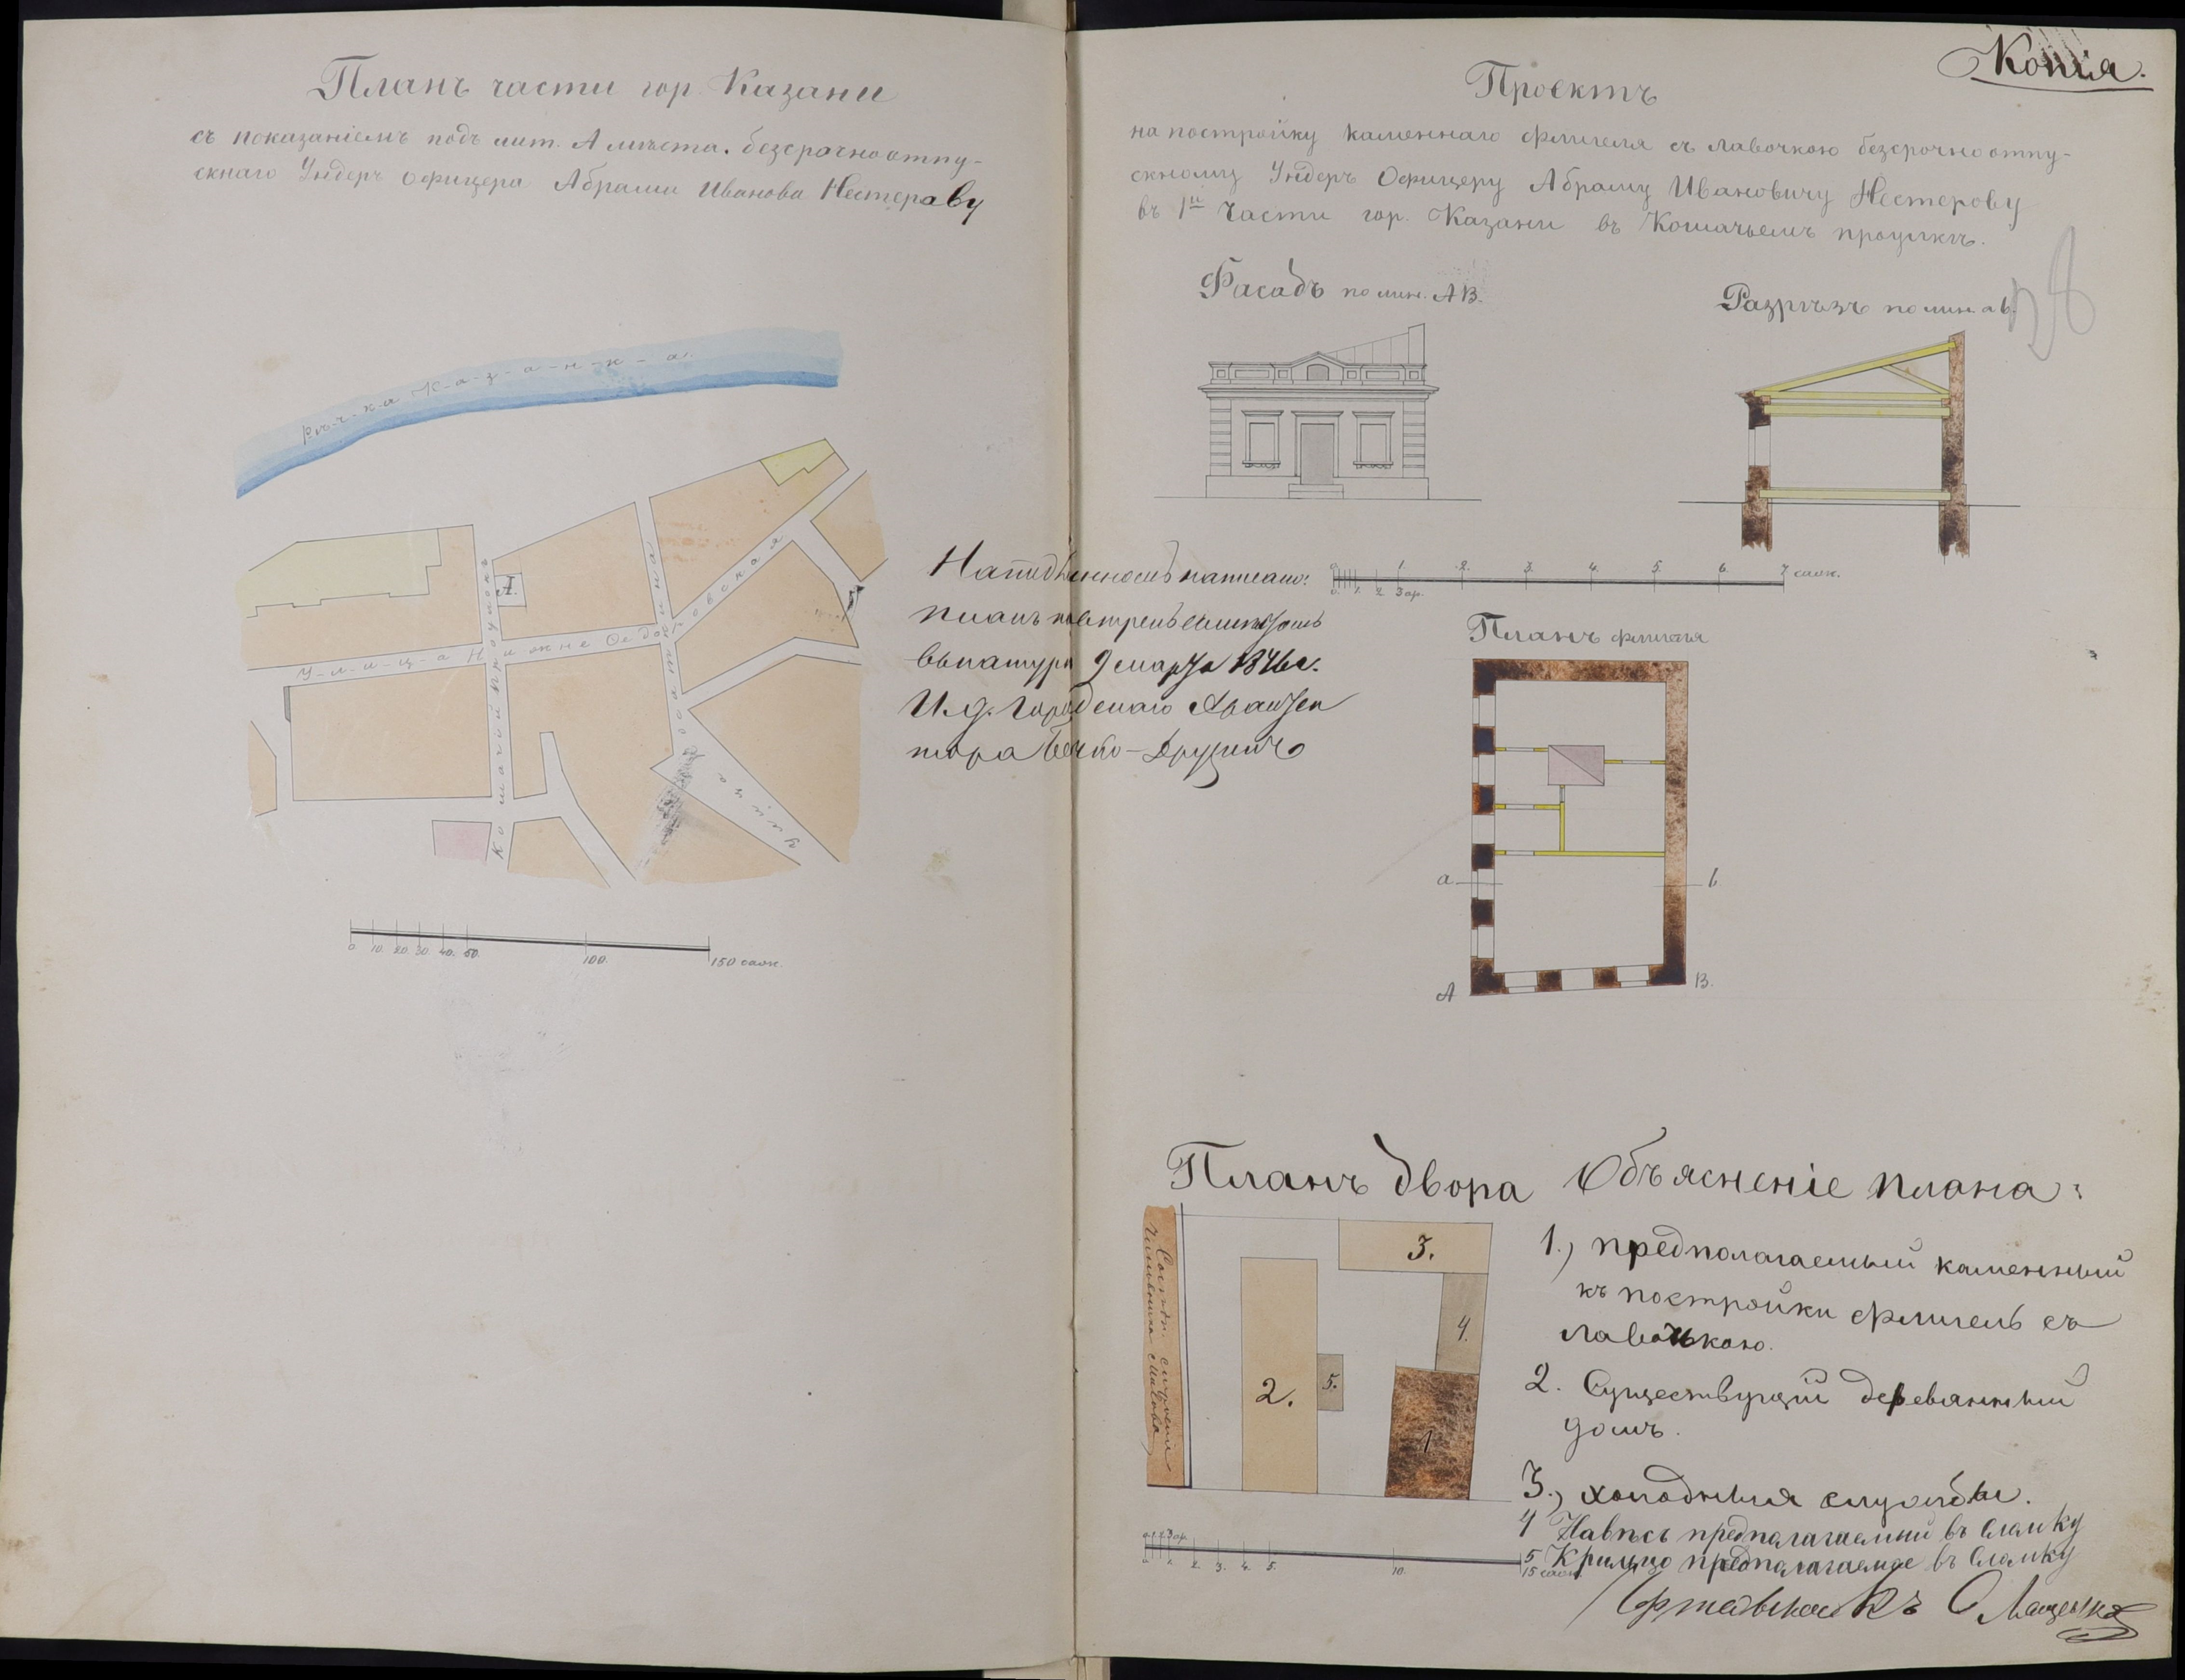 Планъ части гор. Казани
съ показаніемъ подъ лит. А мѣста безсрочноотпу-
скнаго Ундеръ Офицера Абрама Иванова Нестераву
Рѣ-ч-ка К-а-з-а-н-к-а.
А.
У-л-и-ц-а Нижне Ѳедо ровская
Кошачій проулокъ
улица
0. 10. 20. 30. 40. 50. 100. 150 саж.
Копія.
Проектъ
на постройку каменнаго флигеля съ лавочкою безсрочноотпу-
скному Ундеръ Офицеру Абраму Ивановичу Нестерову
въ 1й части гор. Казани въ Кошачьемъ проулкѣ.
Фасадъ по лин. АВ.
Разрѣзъ по лин. ав.
На подлинномъ написано:
планъ
въ натурѣ 9 марта
И.д. Городскаго Архитек
тора
0. 1. 2. 3. 4. 5. 6. 7 саж.
0. 1. 2. 3 ар.
Планъ флигеля
а в
А В.
Планъ двора
3.
4.
2. 5.
1
Объясненіе плана:
1., предполагаемый каменный
къ постройки флигель съ
лавочкою.
2. Существующій деревянный
домъ.
3., холодныя службы.
4 Навѣсъ предполагаемый въ сломку
5 Крыльцо предполагаемое въ сломку
3 ар.
0. 1. 2. 3. 4. 5. 10. 15 саж.